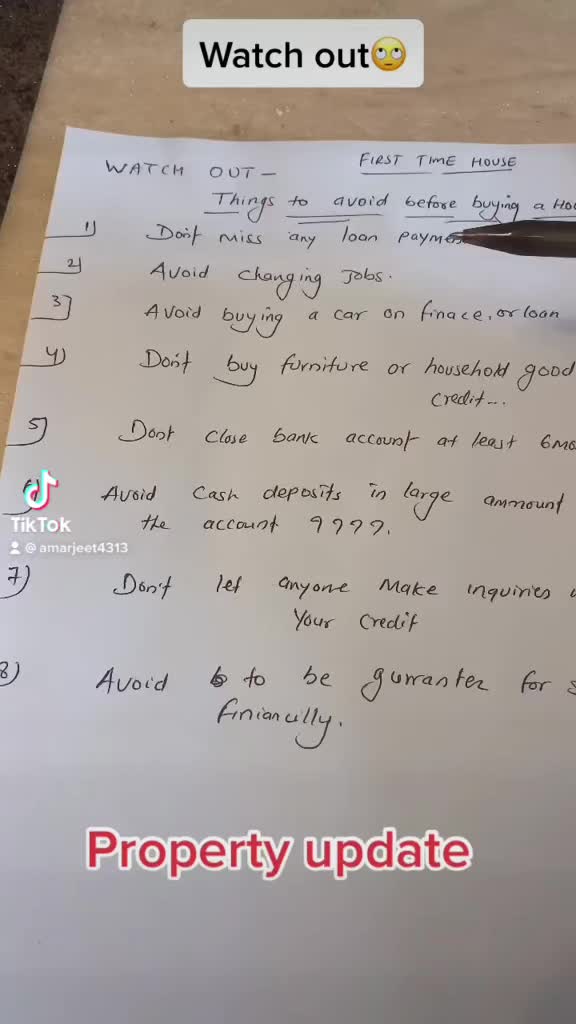 Watch out🙄
FIRST TIME HOUSE
WATCH OUT —
Things to avoid before buying a Hou
1) Don't miss any loan payme
2) Avoid changing Jobs.
3) Avoid buying a car on finace, or loan
4) Don't buy furniture or household good
credit...
5) Dont close bank account at least 6mo
6) Avoid cash deposits in large ammount
the account 9999.
TikTok
@amarjeet4313
7) Don't let anyone Make inquiries
Your Credit
8) Avoid to be gurranter for s
finiancilly.
Property update